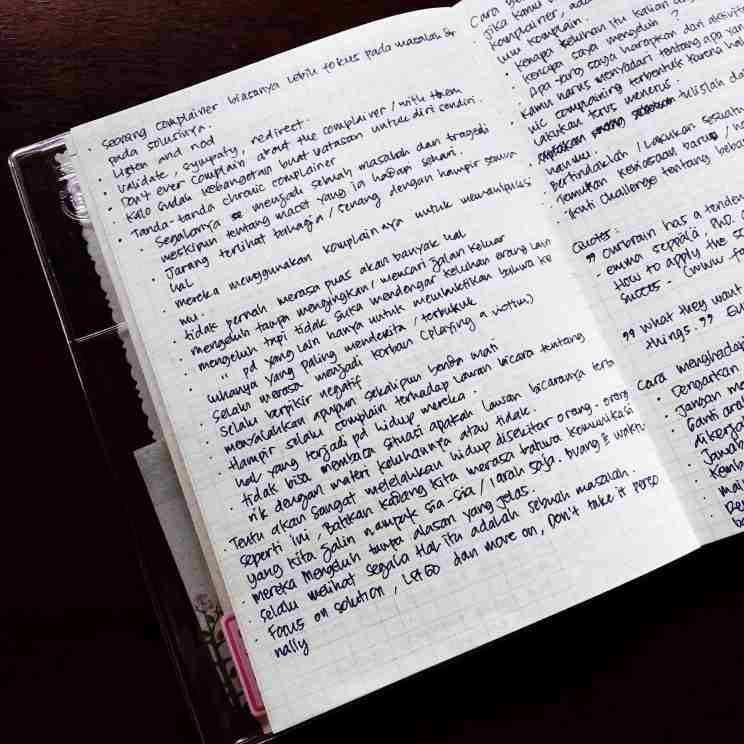 Seorang complainer biasanya lebih fokus pada masalah dr
pada solusinya.
Listen and nod
Validate, sympaty, redirect.
Don't ever complain about the complainer / with them
Kalo sudah kebangetan buat batasan untuk diri sendiri.
Tanda-tanda chronic complainer
Segalanya menjadi sebuah masalah dan tragedi
meskipun tentang macet yang ia hadapi sehari.
Jarang terlihat bahagia / senang dengan hampir semua
hal
mereka menggunakan komplainnya untuk memanipulasi
mu.
tidak pernah merasa puas akan banyak hal
mengeluh tanpa menginginkan / mencari jalan keluar
mengeluh tapi tidak suka mendengar keluhan orang lain
" pd yang lain hanya untuk membuktikan bahwa ke
luhannya yang paling menderita / terburuk
Selalu merasa menjadi korban (playing a victim)
Selalu berpikir negatif
menyalahkan apapun sekalipun benda mati
Hampir selalu complain terhadap lawan bicara tentang
hal yang terjadi pd hidup mereka.
tidak bisa membaca situasi apakah lawan bicaranya terta
rik dengan materi keluhannya atau tidak.
Tentu akan sangat melelahkan hidup disekitar orang-orang
seperti ini, Bahkan kadang kita merasa bahwa komunikasi
yang kita jalin nampak sia-sia / larah saja. buang2 waktu
mereka mengeluh tanpa alasan yang jelas.
Selalu melihat segala hal itu adalah sebuah masalah.
Focus on solution, Let Go and move on, Don't take it perso
nally
Cara
jika kamu
komplainer, ada
mu komplain.
kenapa keluhan itu kalian
kenapa saya mengeluh ?
apa yang saya harapkan dari aktivit
kamu harus menyadari tentang apa yan
nic complaining terbentuk karena hal
lakukan terus menerus.
tulislah da
harimu.
Bertindaklah / Lakukan sesuatu
Temukan kebiasaan baru / h
Ikuti challenge tentang beba
Quotes:
" Our brain has a tenden
- emma seppälä, PhD.
How to apply the sc
Success - (www.fa
" What they want
things. "
Cara menghadapi
Dengarkan
Jangan me
Ganti ara
dikerja
Jawab
Kemba
mai